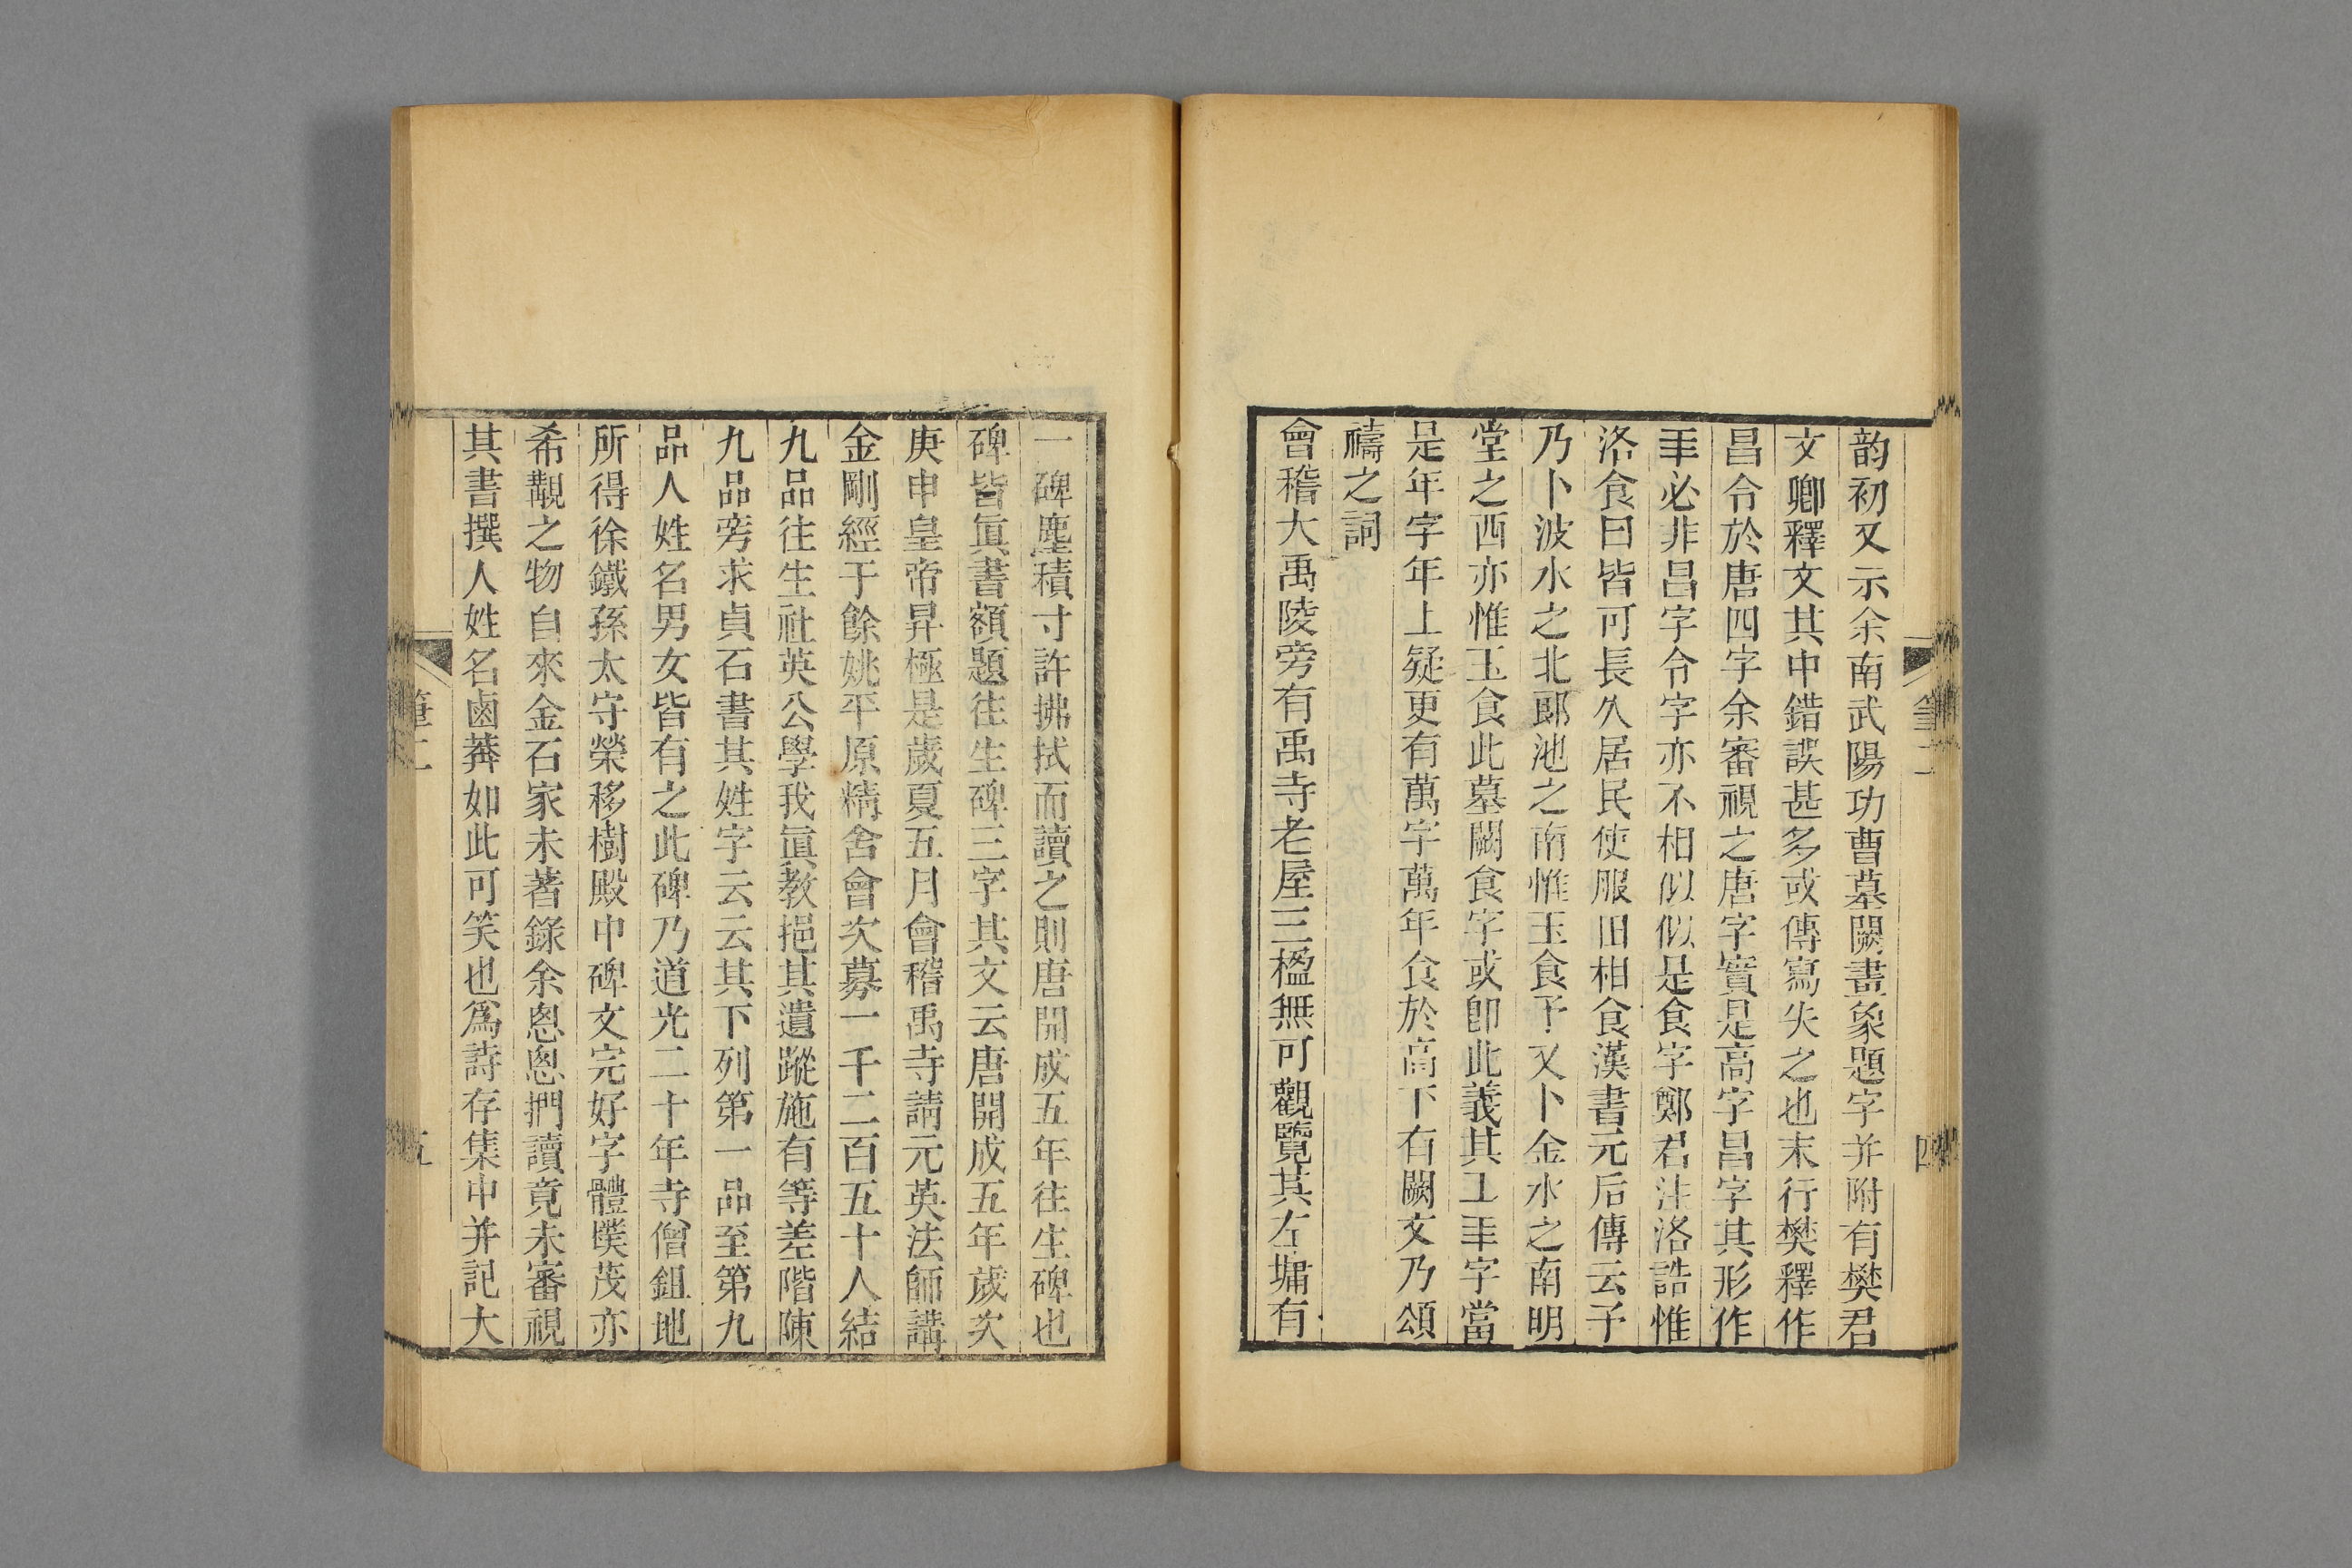 韵初又示余南武陽功曹墓闕畫象題字并附有樊君
文卿釋文其中錯誤甚多或傳寫失之也末行樊釋作
昌令於唐四字余審視之唐字實是高字昌字其形作
𠦜必非昌字令字亦不相似似是食字鄭君注洛誥惟
洛食曰皆可長久居民使服田相食漢書元后傳云予
乃卜波水之北郎池之南惟玉食予又卜金水之南明
堂之西亦惟玉食此墓闕食字或卽此義其上𠦜字當
是年字年上疑更有萬字萬年食於高下有闕文乃頌
禱之詞
會稽大禹陵旁有禹寺老屋三楹無可觀覽其左墉有
筆二
四
一碑塵積寸許拂拭而讀之則唐開成五年往生碑也
碑皆眞書額題往生碑三字其文云唐開成五年歲次
庚申皇帝昇極是歲夏五月會稽禹寺請元英法師講
金剛經于餘姚平原精舍會次募一千二百五十人結
九品往生社英公學我眞教挹其遺蹤施有等差階陳
九品旁求貞石書其姓字云云其下列第一品至第九
品人姓名男女皆有之此碑乃道光二十年寺僧鉏地
所得徐鐵孫太守榮移樹殿中碑文完好字體樸茂亦
希覯之物自來金石家未著錄余悤悤捫讀竟未審視
其書撰人姓名鹵莽如此可笑也爲詩存集中并記大
筆二
五